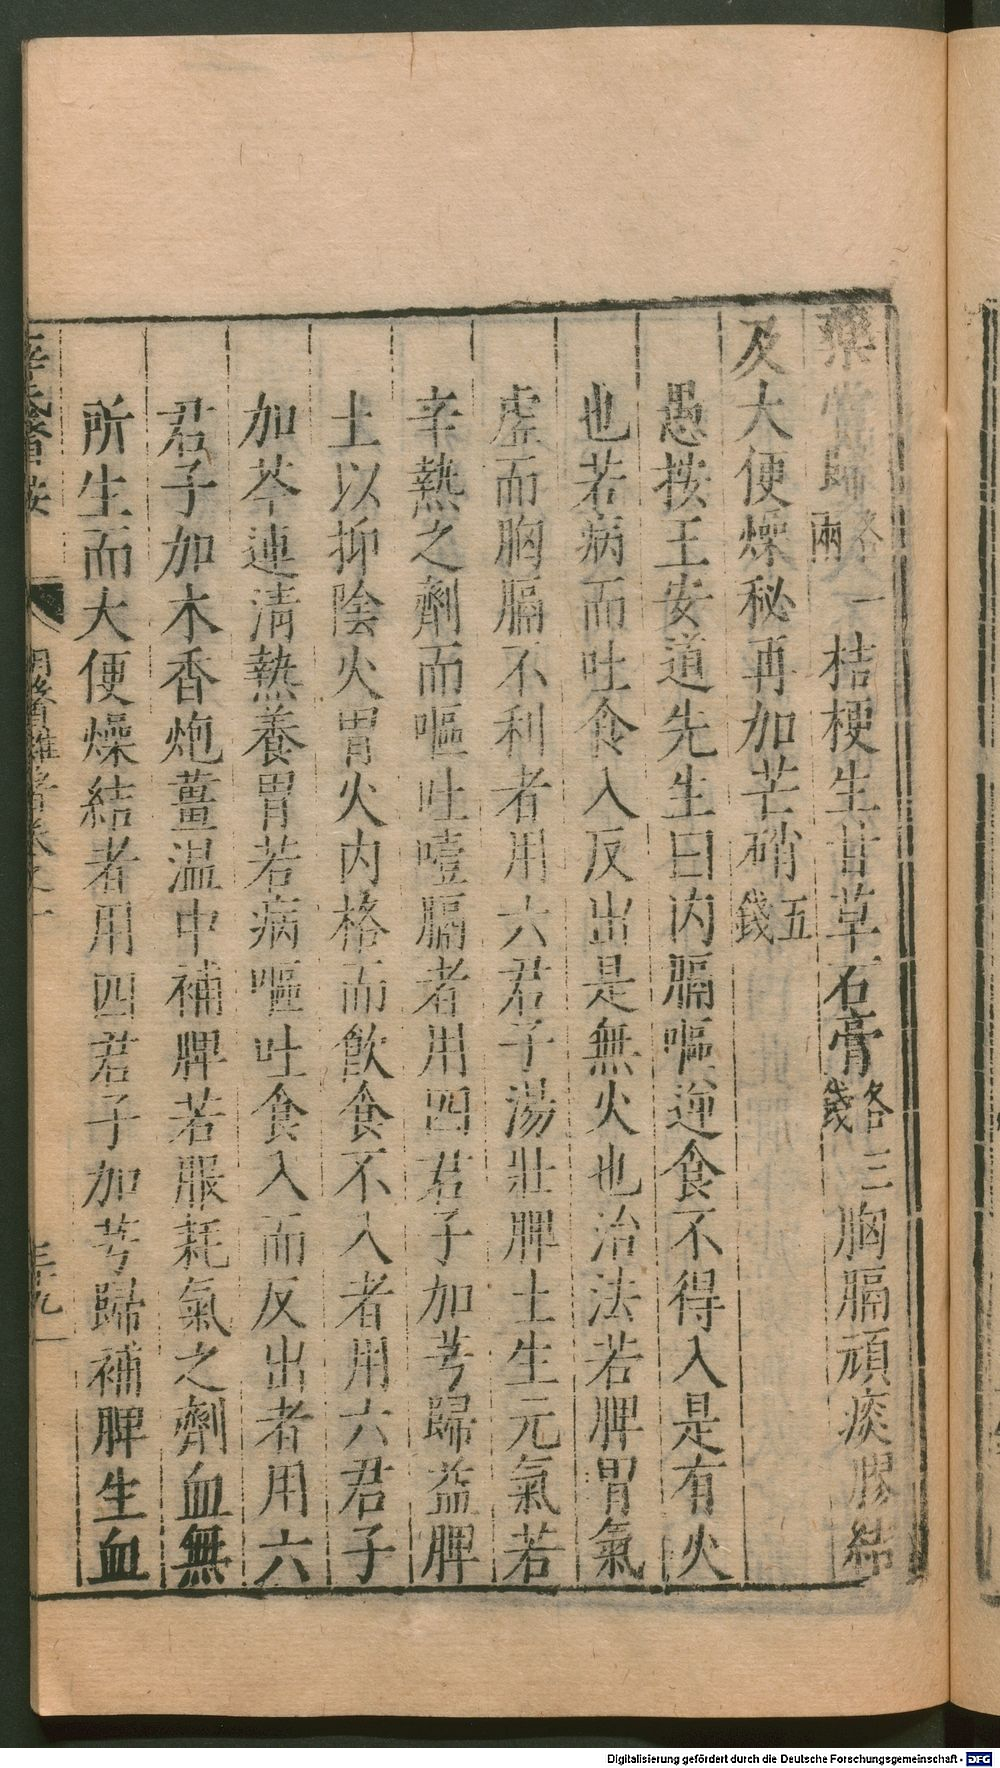 藥當歸各一兩桔梗生甘草石膏各三錢胸膈頑痰膠結
及大便燥秘再加芒硝五錢
愚按王安道先生曰内膈嘔逆食不得入是有火
也若病而吐食入反出是無火也治法若脾胃氣
虛而胸膈不利者用六君子湯壯脾土生元氣若
辛熱之劑而嘔吐噎膈者用四君子加芎歸益脾
土以抑陰火胃火内格而飲食不入者用六君子
加芩連清熱養胃若病嘔吐食入而反出者用六
君子加木香炮薑温中補脾若服耗氣之劑血無
所生而大便燥結者用四君子加芎歸補脾生血
卷之一
三十九
Digitalisierung gefördert durch die Deutsche Forschungsgemeinschaft - DFG